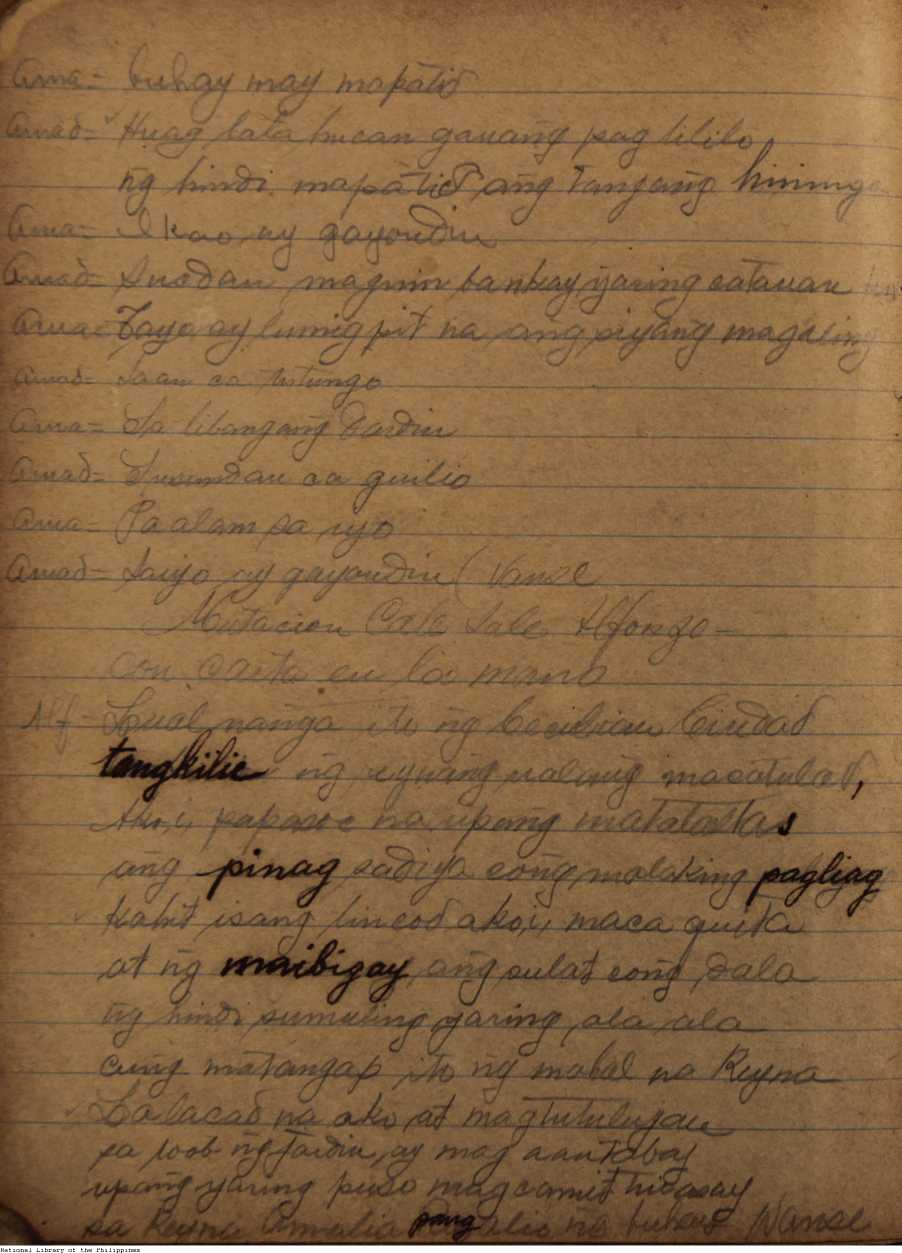 Ama= buhay may mapatid
Amad= Huag bata hucan gauang pag lililo
ng hindi mapatid ang tanyang hininga
Ama= Ikao ay gayondin
Amad= Sucdan maguin bankay yaring catauan
Ama= Tayo ay lumigpit na ang siyang magaling
Amad= Saan ca tutungo
Ama= Sa libangang Jardin
Amad= Susundan ca guilio
Ama= Pa alam sa iyo
Amad= Saiyo ay gayondin (Vanse
Mutacion Calle Sale Alfonso
con carta en la mano
Alf= ito ng Cecilian Ciudad
tangkilic ng reynang ualang macatulad,
Ako,i, papasoc na upang matatastas
ang pinag sadiya cong malaking pagliyag
Kahit isang lincod ako,i, maca quita
at ng maibigay ang sulat cong dala
ng hindi sumuling yaring ala ala
cung matangap ito ng mahal na Reyna
Lalacad na ako at magtutuluyan
sa loob ng Jardin ay mag aantabay
upang yaring puso magcamit hidasay
sa Reyna Amalia pang ilio na buhay Vanse
National Library of the Philippines